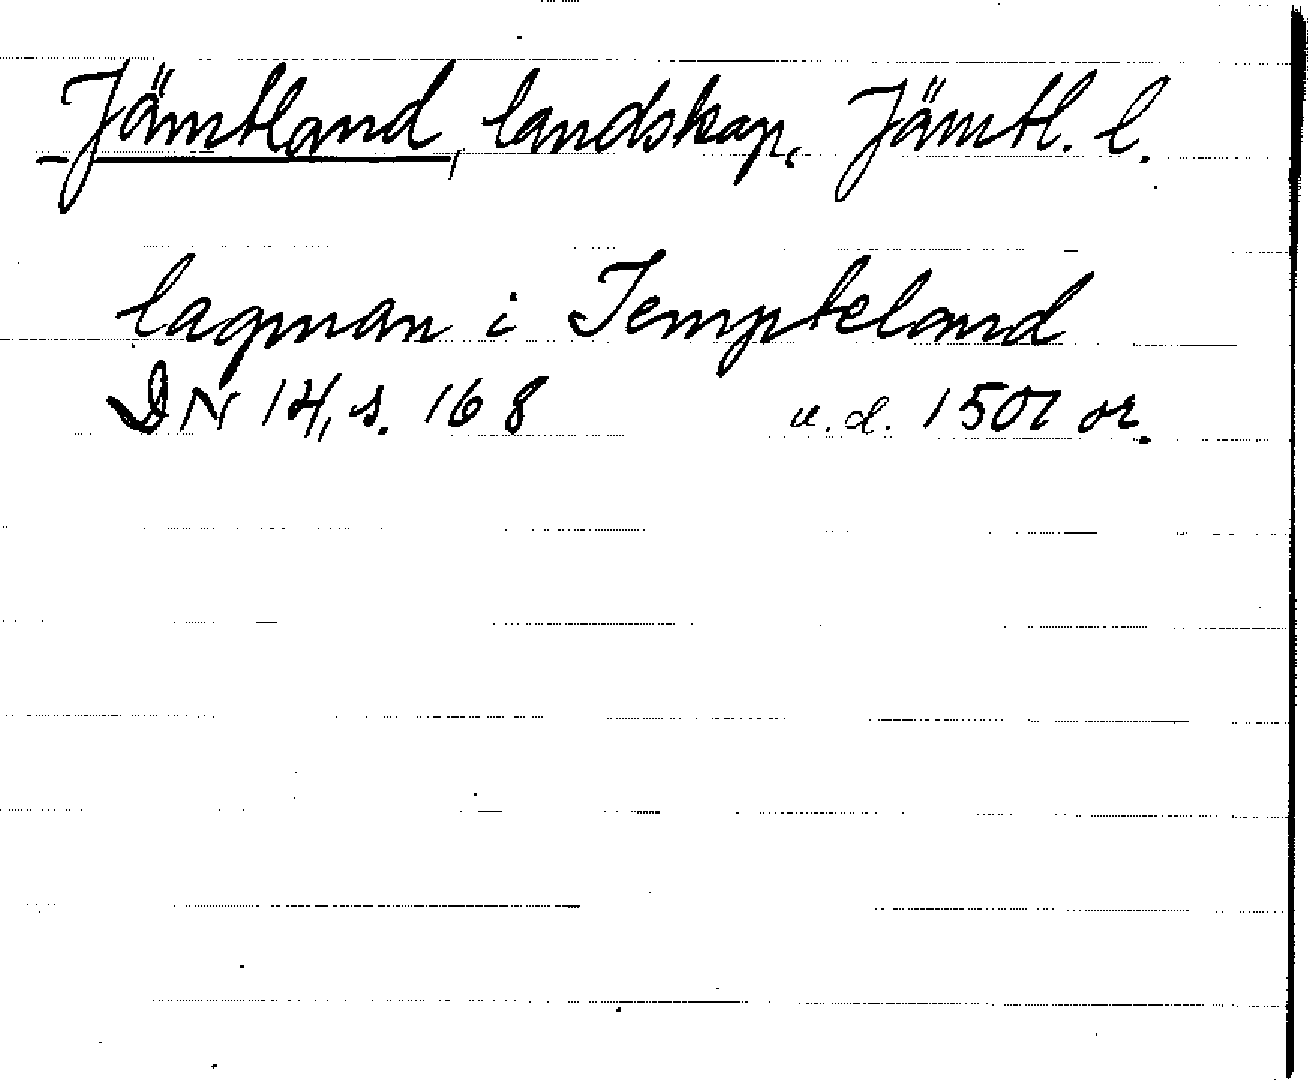 Jämtland, landskap, Jämtl. l.
lagman i Jempteland
DN 14, s. 168 u.d. 1501 or.